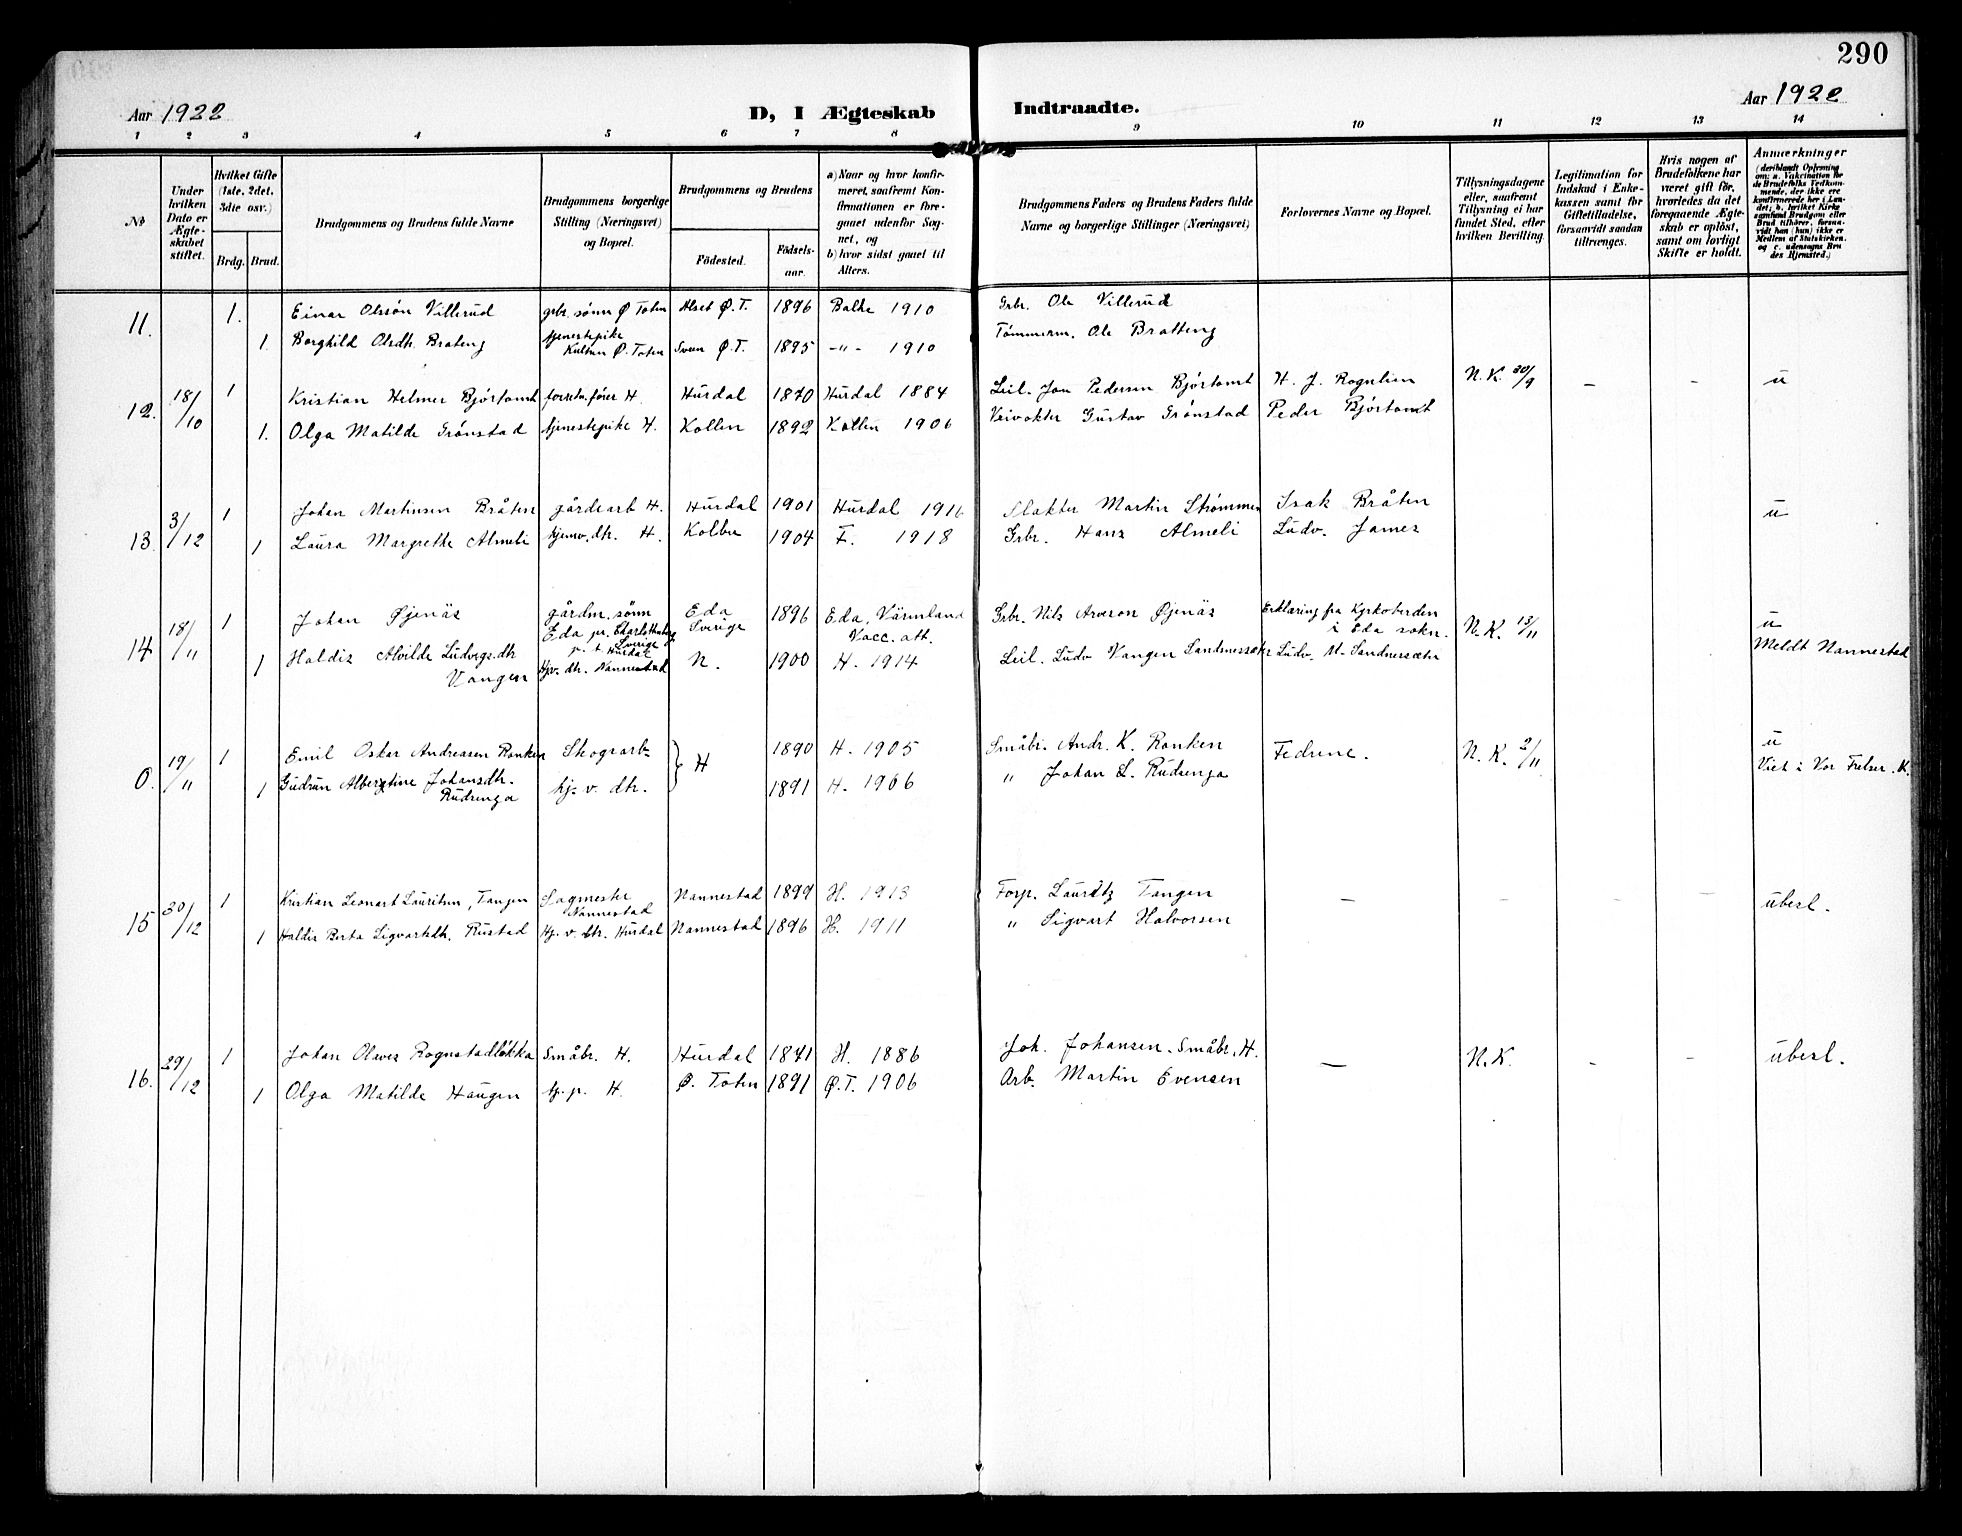 290
Aar 1922
D, I Ægteskab Indtraadte.
Aar 1922
1 2 3 4 5 6 7 8 9 10 11 12 13 14
№
Under hvilken Dato er Ægteskabet stiftet.
Hvilket Gifte (1ste, 2det, 3die osv.)
Brdg. Brud.
Brudgommens og Brudens fulde Navne
Brudgommens borgerlige Stilling (Næringsvei) og Bopæl.
Brudgommens og Brudens
Fødested.
Fødselsaar.
a) Naar og hvor konfirmeret, saafremt Konfirmationen er foregaaet udenfor Sognet, og
b) hvor sidst gaaet til Alters.
Brudgommens Faders og Brudens Faders fulde Navne og borgerlige Stillinger (Næringsvei)
Forlovernes Navne og Bopæl.
Tillysningsdagene eller, saafremt Tillysning ei har fundet Sted, efter hvilken Bevilling.
Legitimation for Indskud i Enkekassen samt for Giftetilladelse, forsaavidt saadan tiltrænges.
Hvis nogen af Brudefolkene har været gift før, hvorledes da det foregaaende Ægteskab er opløst, samt om lovligt Skifte er holdt.
Anmærkninger
(deriblandt Oplysning om: a. Vakcination for de Brudefolks Vedkommende, der ikke ere konfirmerede her i Landet; b. hvilket Kirkesamfund Brudgom eller Brud tilhører, forsaavidt han (hun) ikke er Medlem af Statskirken, og c. udensogns Brudes Hjemsted.)
11. 1. Einar Olssøn Villerud gbr. sønn Ø Toten Alset Ø.T. 1896 Balke 1910 Grbr. Ole Villerud
1. Borghild Olsdh. Brateng tjenestepike Kulten Ø. Toten Sveen Ø.T. 1895 -"- 1910 Tømmerm. Ole Bratteng
12. 18/10 1 Kristian Helmer Bjørtomt forretn.fører H. Hurdal 1870 Hurdal 1884 Leil. Jon Pedersen Bjørtomt H. J. Rognlien N.K. 30/9 – – u
1. Olga Matilde Grønstad tjenestepike H. Kollen 1892 Kollen 1906 Veivokter Gustav Grønstad Peder Bjørtomt
13. 3/12 1 Johan Martinsen Bråten gårdsarb H. Hurdal 1901 Hurdal 1916 Slakter Martin Strømmen Isak Bråten u
1 Laura Margrethe Almeli hjemv. dtr. H. Kolbu 1904 F. 1918 Grbr. Hans Almeli Ludv. James
14 18/11 1 Johan Øjenäs gårdm. sønn Eda pr. Charlottenberg Sverige p. t. Hurdal Eda Sverige 1896 Eda, Värmland Vacc. att. Grbr. Nils Arvson Øjenäs Erklaring fra Kyrkoherden i Eda sokn. N.K. 13/11 u
1 Haldis Alvilde Ludvgs.dtr Vangen Hjv. dtr. Nannestad N. 1900 H. 1914 Leil. Ludv Vangen Sandnessæter Ludv. M. Sandnessæter Meldt Nannestad
0. 19/11 1 Emil Oskar Andreasen Ronken Skogsarb. } H 1890 H. 1905 Småbr. Andr. K. Ronken Fedrene. N.K. 2/11 u
1 Gudrun Albertine Johansdtr. Rudsenga hj. v. dtr. 1891 H. 1906 " Johan L. Rudsenga Viet i Vor Frelser. K.
15 30/12 1 Kristian Leonart Lauritsen, Tangen Sagmester Nannestad Nannestad 1899 H. 1913 Forp. Lauritz Tangen – – – – ubesl.
1 Haldis Berta Sigvartsdtr. Rustad Hj. v. dtr. Hurdal Nannestad 1896 H. 1911 " Sigvart Halvorsen
16. 29/12 1 Johan Olaves Rognstadløkka Småbr. H. Hurdal 1871 H. 1886 Joh. Johansen. Småbr. H. – N.K. – – ubesl.
1 Olga Matilde Haugen tj. p. H. Ø. Toten 1891 Ø.T. 1906 Arb. Martin Evensen